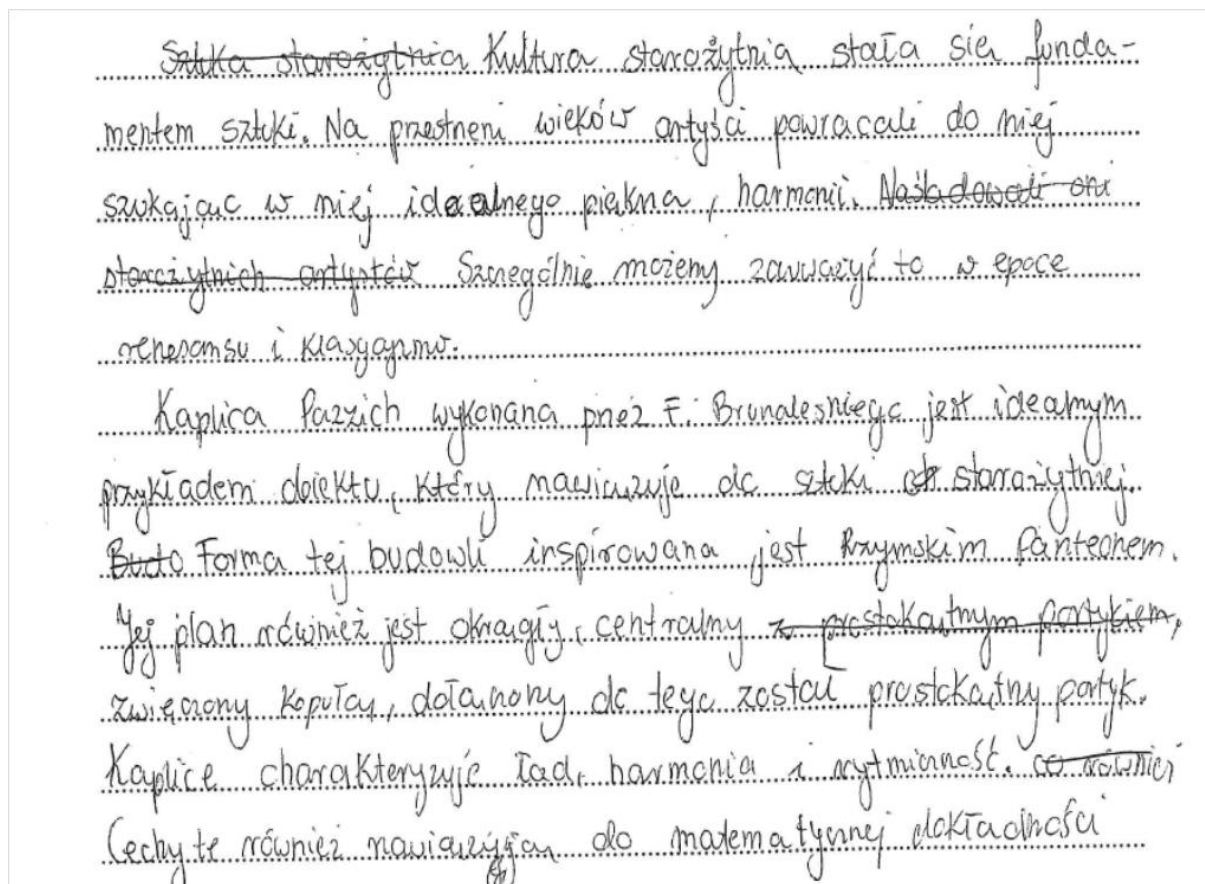 Sztuka starożytnia Kultura starożytnia stała sie funda-
mentem sztuki. Na przestrzeni wieków artyści powracali do niej
szukając w niej idealnego piękna, harmonii. Naśladowali oni
starożytnich artystów Szczególnie możemy zauważyć to w epoce
renesansu i klasycyzmu.
Kaplica Pazzich wykonana przez F. Brunalesniego jest idealnym
przykładem obiektu, który nawiązuje do sztuki st starożytniej.
Budo Forma tej budowli inspirowana jest Rzymskim Panteonem.
Jej plan również jest okrągły, centralny z prostokątnym portykiem,
zwięczony kopułą, dołączony do tego został prostokątny portyk.
Kaplice charakteryzuje ład, harmonia i rytmiczność. co również
Cechy te również nawiązują do matematycznej dokładności